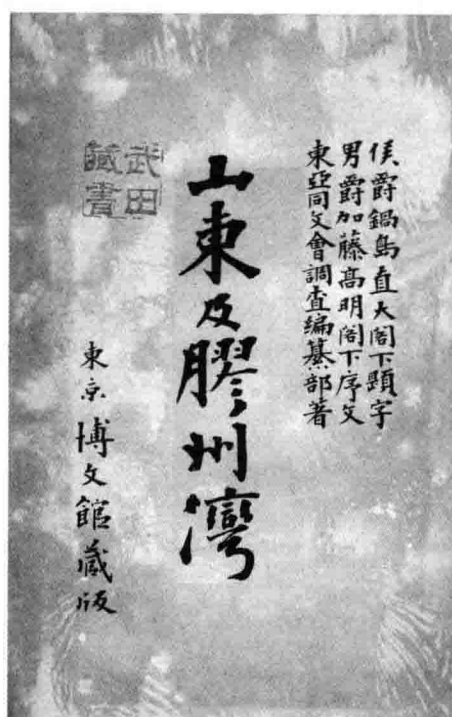 侯爵鍋島直大閣下題字
男爵加藤高明閣下序文
東亞同文會調査編纂部著
山東及膠州灣
東京博文館蔵版
武田
蔵書